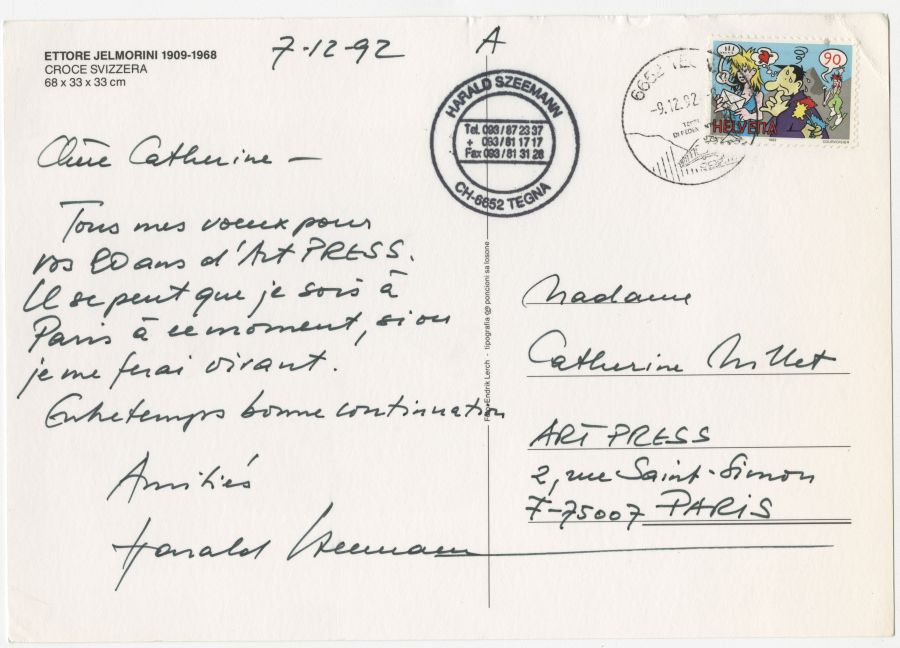 ETTORE JELMORINI 1909-1968
CROCE SVIZZERA
68 x 33 x 33 cm
7-12-92
A
HARALD SZEEMANN
Tel. 093/87 23 37
+ 093/81 17 17
Fax 093/81 31 28
CH-6652 TEGNA
6652 TEG
-9.12.92
90
HELVETIA
COURVOISIER
Chère Catherine –
Tous mes voeux pour
vos 20 ans d'Art PRESS.
Il se peut que je sois à
Paris à ce moment, sinon
je me ferai vivant.
Entretemps bonne continuation
Amitiés
Harald Szeemann
Foto Endrik Lerch - tipografia poncioni sa losone
Madame
Catherine Millet
ART PRESS
2, rue Saint-Simon
F-75007 PARIS